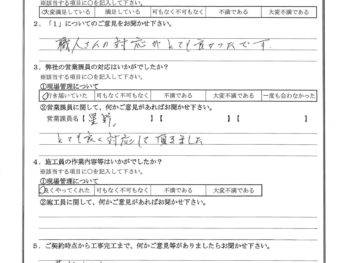 ※該当する項目に○を記入して下さい。
大変満足している 満足している 可もなく不可もなく 不満である 大変不満である
2．「1」についてのご意見をお聞かせ下さい。
職人さんの対応がとても良かったです。
3．弊社の営業課員の対応はいかがでしたか？
※該当する項目に○を記入して下さい。
①現場管理について
行き届いていた 可もなく不可もなく 不満である 大変不満である 一度も会わなかった
②営業課員に関して、何かご意見があればお聞かせ下さい。
営業課員名【 】【 】【 】
とても良く対応して頂きました
4．施工員の作業内容等はいかがでしたか？
※該当する項目に○を記入して下さい。
①現場管理について
良くやってくれた 可もなく不可もなく 不満である 大変不満である
②施工員に関して、何かご意見があればお聞かせ下さい。
5．ご契約時点から工事完工まで、何かご意見等がありましたらお聞かせ下さい。